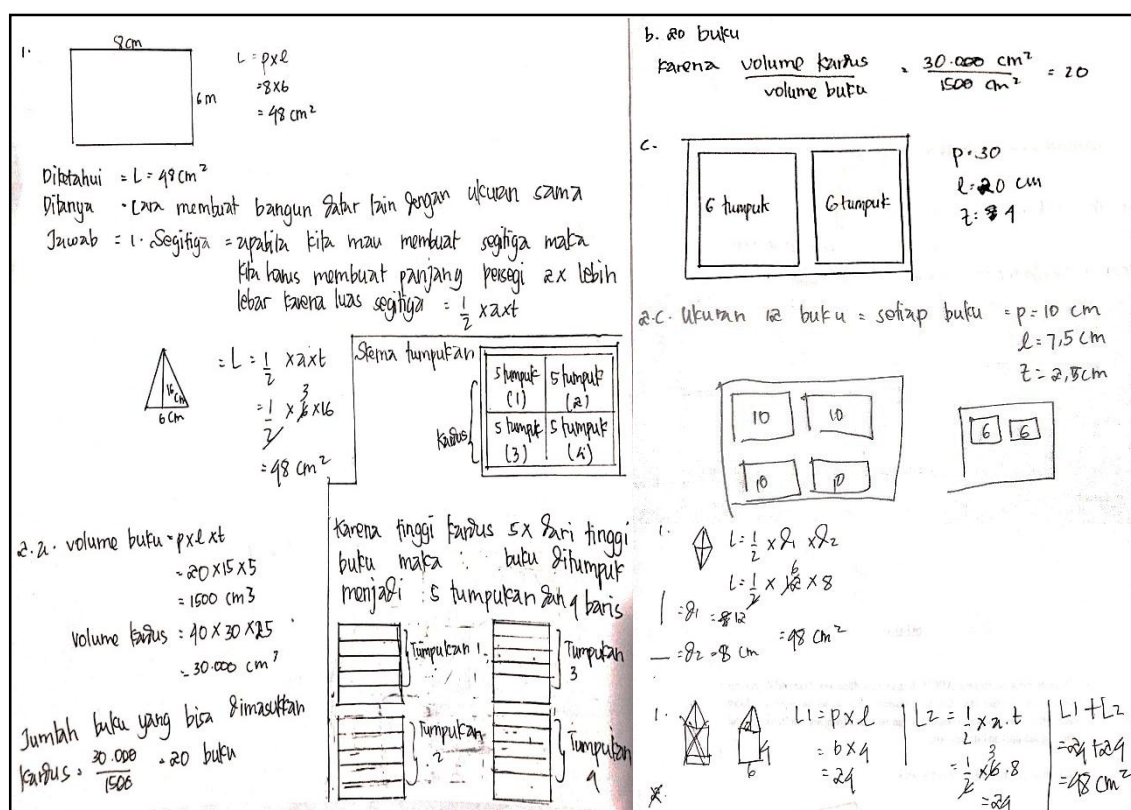 1.
8cm
6 m
L = p x l
= 8 x 6
= 48 cm²
Diketahui = L = 48 cm²
Ditanya = cara membuat bangun datar lain dengan ukuran sama
Jawab = 1. Segitiga = apabila kita mau membuat segitiga maka
kita harus membuat panjang persegi 2x lebih
lebar karena luas segitiga = 1/2 x a x t
16 cm
6 cm
= L = 1/2 x a x t
3
= 1/2 x 6 x 16
= 48 cm²
Skema tumpukan
Kardus
5 tumpuk (1)
5 tumpuk (2)
5 tumpuk (3)
5 tumpuk (4)
2.a. volume buku = p x l x t
= 20 x 15 x 5
= 1500 cm3
volume kardus = 40 x 30 x 25
= 30.000 cm³
Jumlah buku yang bisa dimasukkan
kardus = 30.000/1500 = 20 buku
Karena tinggi kardus 5x dari tinggi
buku maka : buku ditumpuk
menjadi : 5 tumpukan dan 4 baris
Tumpukan 1
Tumpukan 3
Tumpukan 2
Tumpukan 4
b. 20 buku
karena volume kardus / volume buku = 30.000 cm² / 1500 cm² = 20
c.
6 tumpuk
6 tumpuk
p = 30
l = 20 cm
t = 4
2.c. Ukuran 12 buku = setiap buku = p = 10 cm
l = 7,5 cm
t = 2,5 cm
10
10
10
10
6
6
1.
L = 1/2 x d1 x d2
6
L = 1/2 x 12 x 8
| = d1 = 12
= 48 cm²
— = d2 = 8 cm
1.
4
6
L1 = p x l
= 6 x 4
= 24
L2 = 1/2 x a . t
3
= 1/2 x 6 . 8
= 24
L1 + L2
= 24 + 24
= 48 cm²